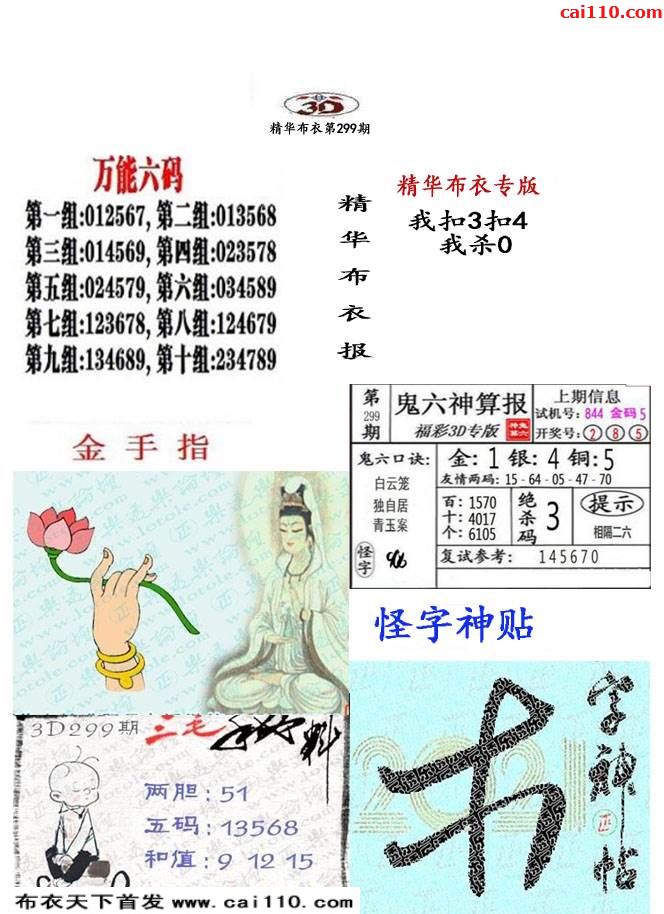 cai110.com
3D
精华布衣第299期
万能六码
第一组:012567, 第二组:013568
第三组:014569, 第四组:023578
第五组:024579, 第六组:034589
第七组:123678, 第八组:124679
第九组:134689, 第十组:234789
精华布衣报
精华布衣专版
我扣3扣4
我杀0
金手指
第299期
鬼六神算报
福彩3D专版
上期信息
试机号: 844 金码 5
开奖号: 2 8 5
鬼六口诀:
白云笼
独自居
青玉案
怪字
金: 1 银: 4 铜: 5
友情两码: 15-64-05-47-70
百: 1570
十: 4017
个: 6105
绝杀码
3
提示
相隔二六
复试参考: 145670
怪字神贴
字神帖
正
2021
3D299期
三毛
料
两胆: 51
五码: 13568
和值: 9 12 15
布衣天下首发 www.cai110.com